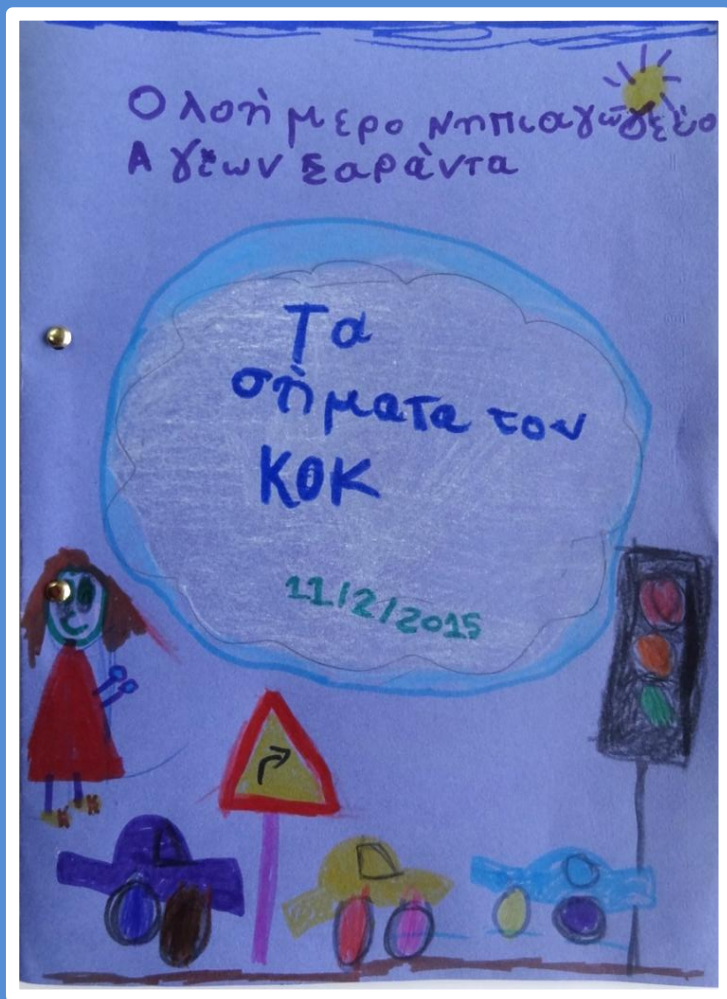 Ολοήμερο Νηπιαγωγείο
Αγίων Σαράντα
Τα
σήματα του
ΚΟΚ
11/2/2015